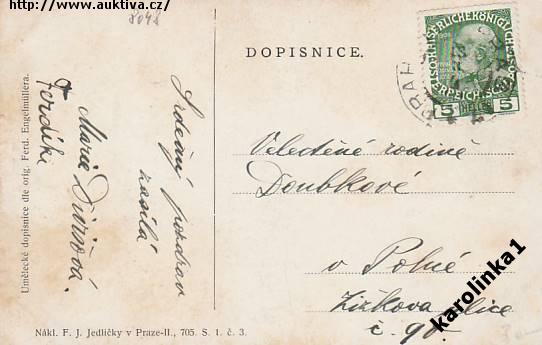 http://www.auktiva.cz/
8048
DOPISNICE.
Srdečný pozdrav
zasílá
Marie
Ferdíka
Velectěné rodině
Doubkové
v Polné
Žižkova ulice
č. 90
KAISERLICHE KÖNIGLICHE
5 HELLER 5
PRAHA
Umělecké dopisnice dle orig. Ferd. Engelmüllera.
Nákl. F. J. Jedličky v Praze-II., 705. S. 1. č. 3.
karolinka1